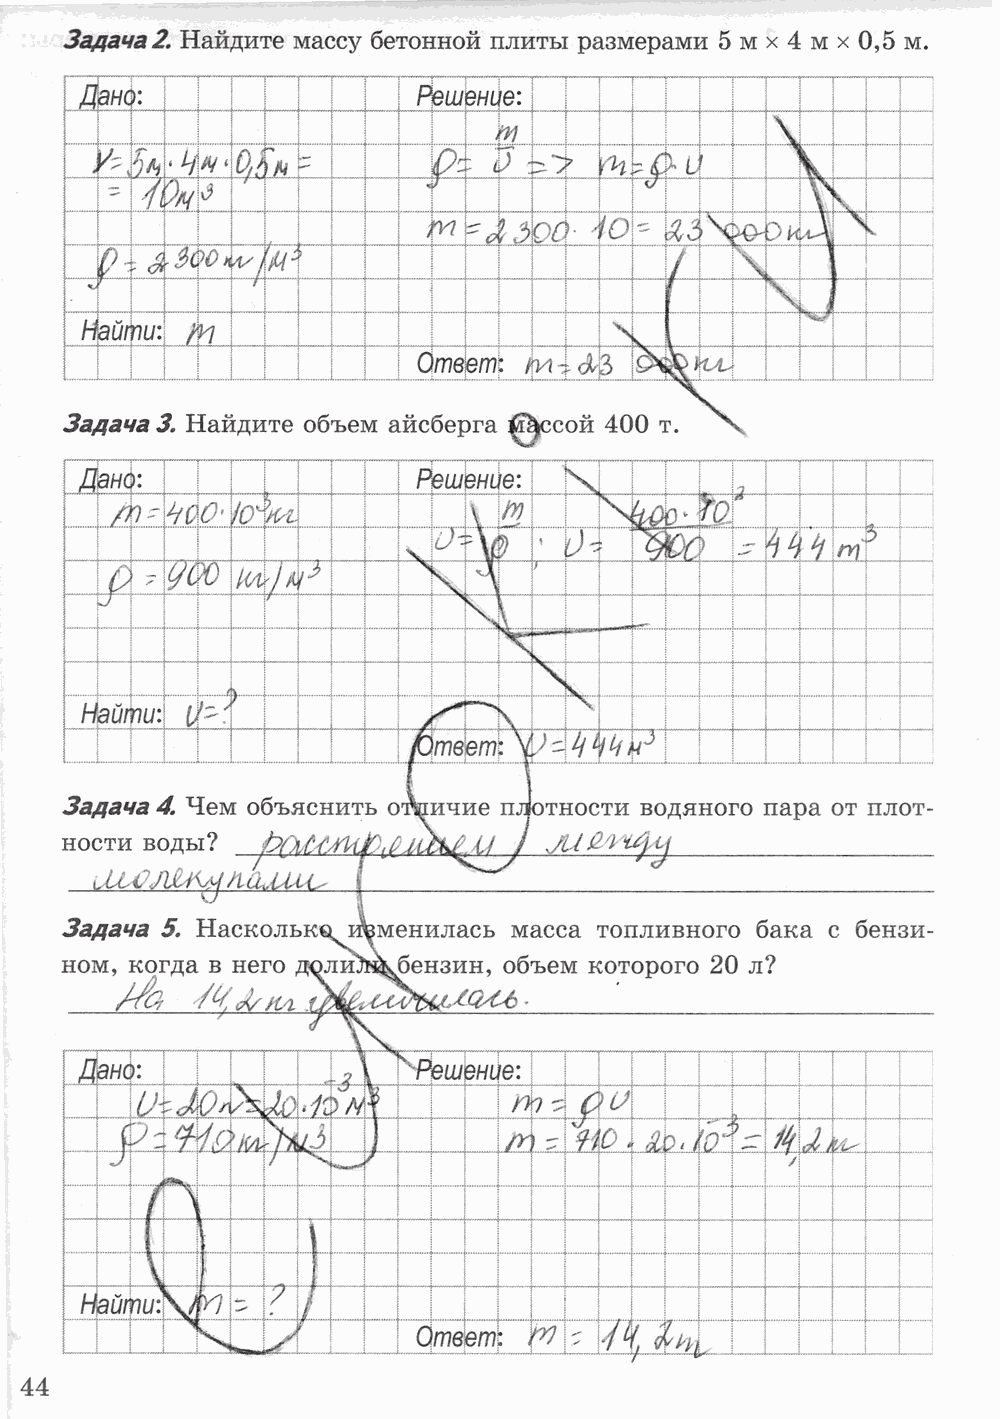 Задача 2. Найдите массу бетонной плиты размерами 5 м × 4 м × 0,5 м.
Дано:
V = 5м · 4м · 0,5м =
= 10м³
ρ = 2300кг/м³
Найти: m
Решение:
ρ = m/υ => m = ρ · υ
m = 2300 · 10 = 23 000кг
Ответ: m = 23 000кг
Задача 3. Найдите объем айсберга массой 400 т.
Дано:
m = 400 · 10³кг
ρ = 900 кг/м³
Найти: υ = ?
Решение:
υ = m/ρ ; υ = 400 · 10³/900 = 444 m³
Ответ: υ = 444м³
Задача 4. Чем объяснить отличие плотности водяного пара от плот-
ности воды? расстоянием между
молекулами
Задача 5. Насколько изменилась масса топливного бака с бензи-
ном, когда в него долили бензин, объем которого 20 л?
На 14,2кг увеличилась.
Дано:
υ = 20л = 20 · 10⁻³м³
ρ = 710кг/м³
Найти: m = ?
Решение:
m = ρυ
m = 710 · 20 · 10⁻³ = 14,2кг
Ответ: m = 14,2т
44